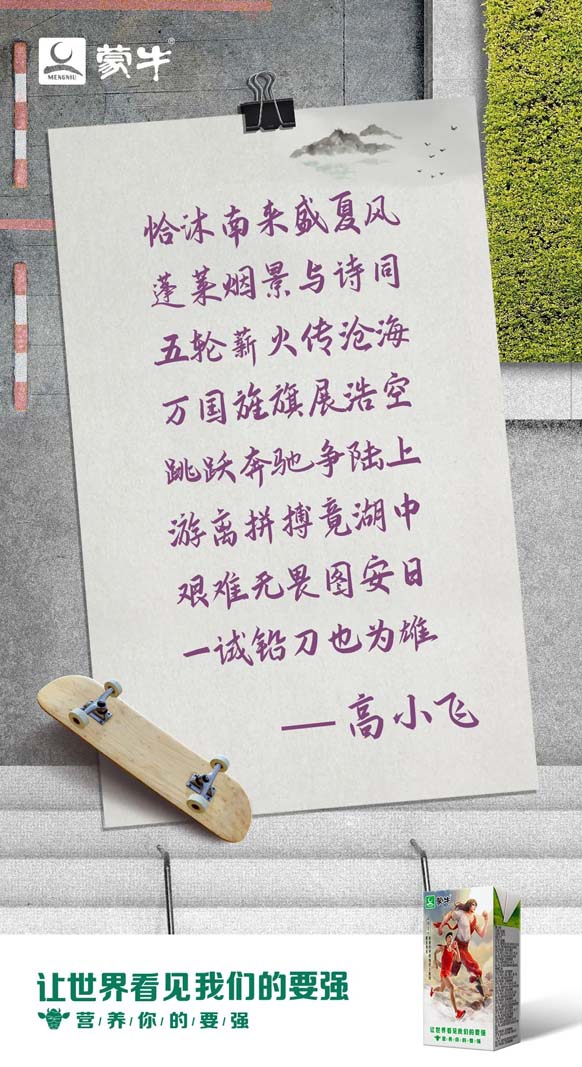 蒙牛®
MENGNIU
恰沐南来盛夏风
蓬莱烟景与诗同
五轮薪火传沧海
万国旌旗展浩空
跳跃奔驰争陆上
游离拼搏竟湖中
艰难无畏图安日
一试铅刀也为雄
—高小飞
让世界看见我们的要强
营/养/你/的/要/强
蒙牛
让世界看见我们的要强
营/养/你/的/要/强